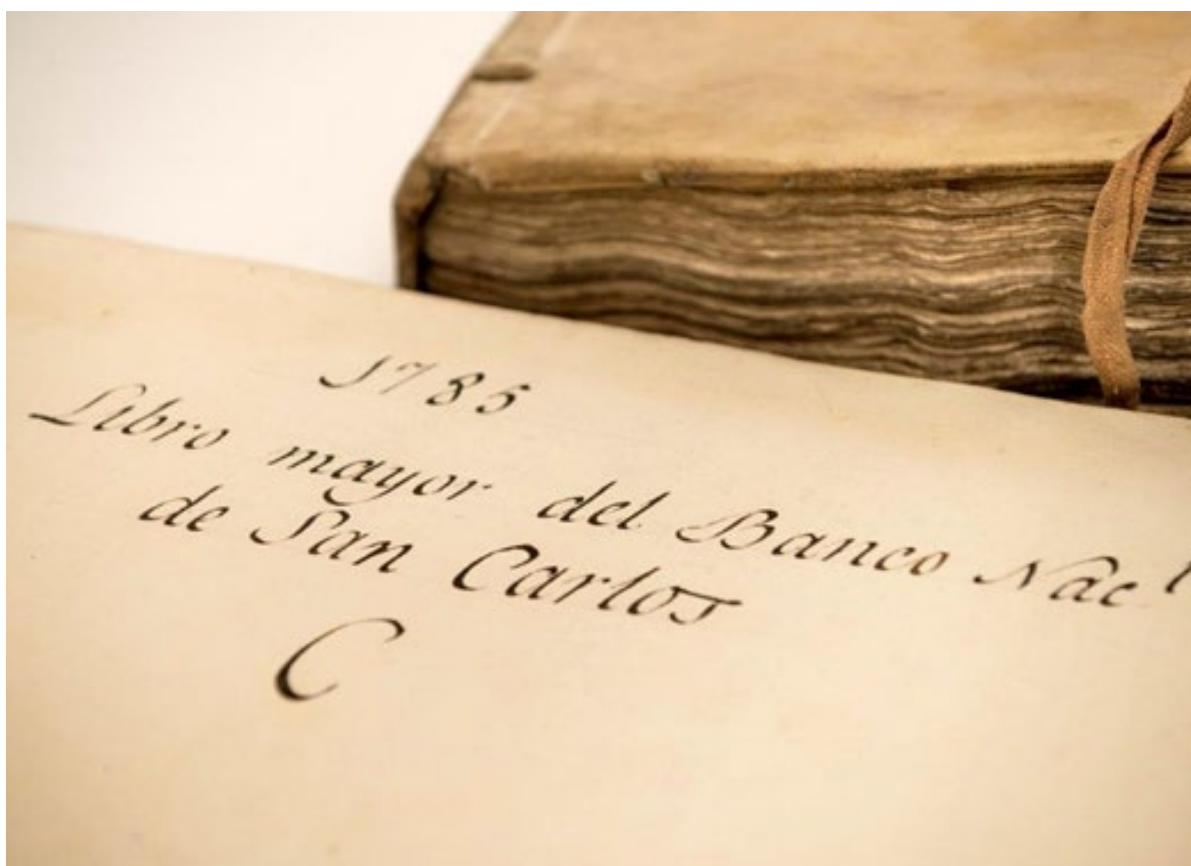 1785
Libro mayor del Banco Nac.l
de San Carlos
C